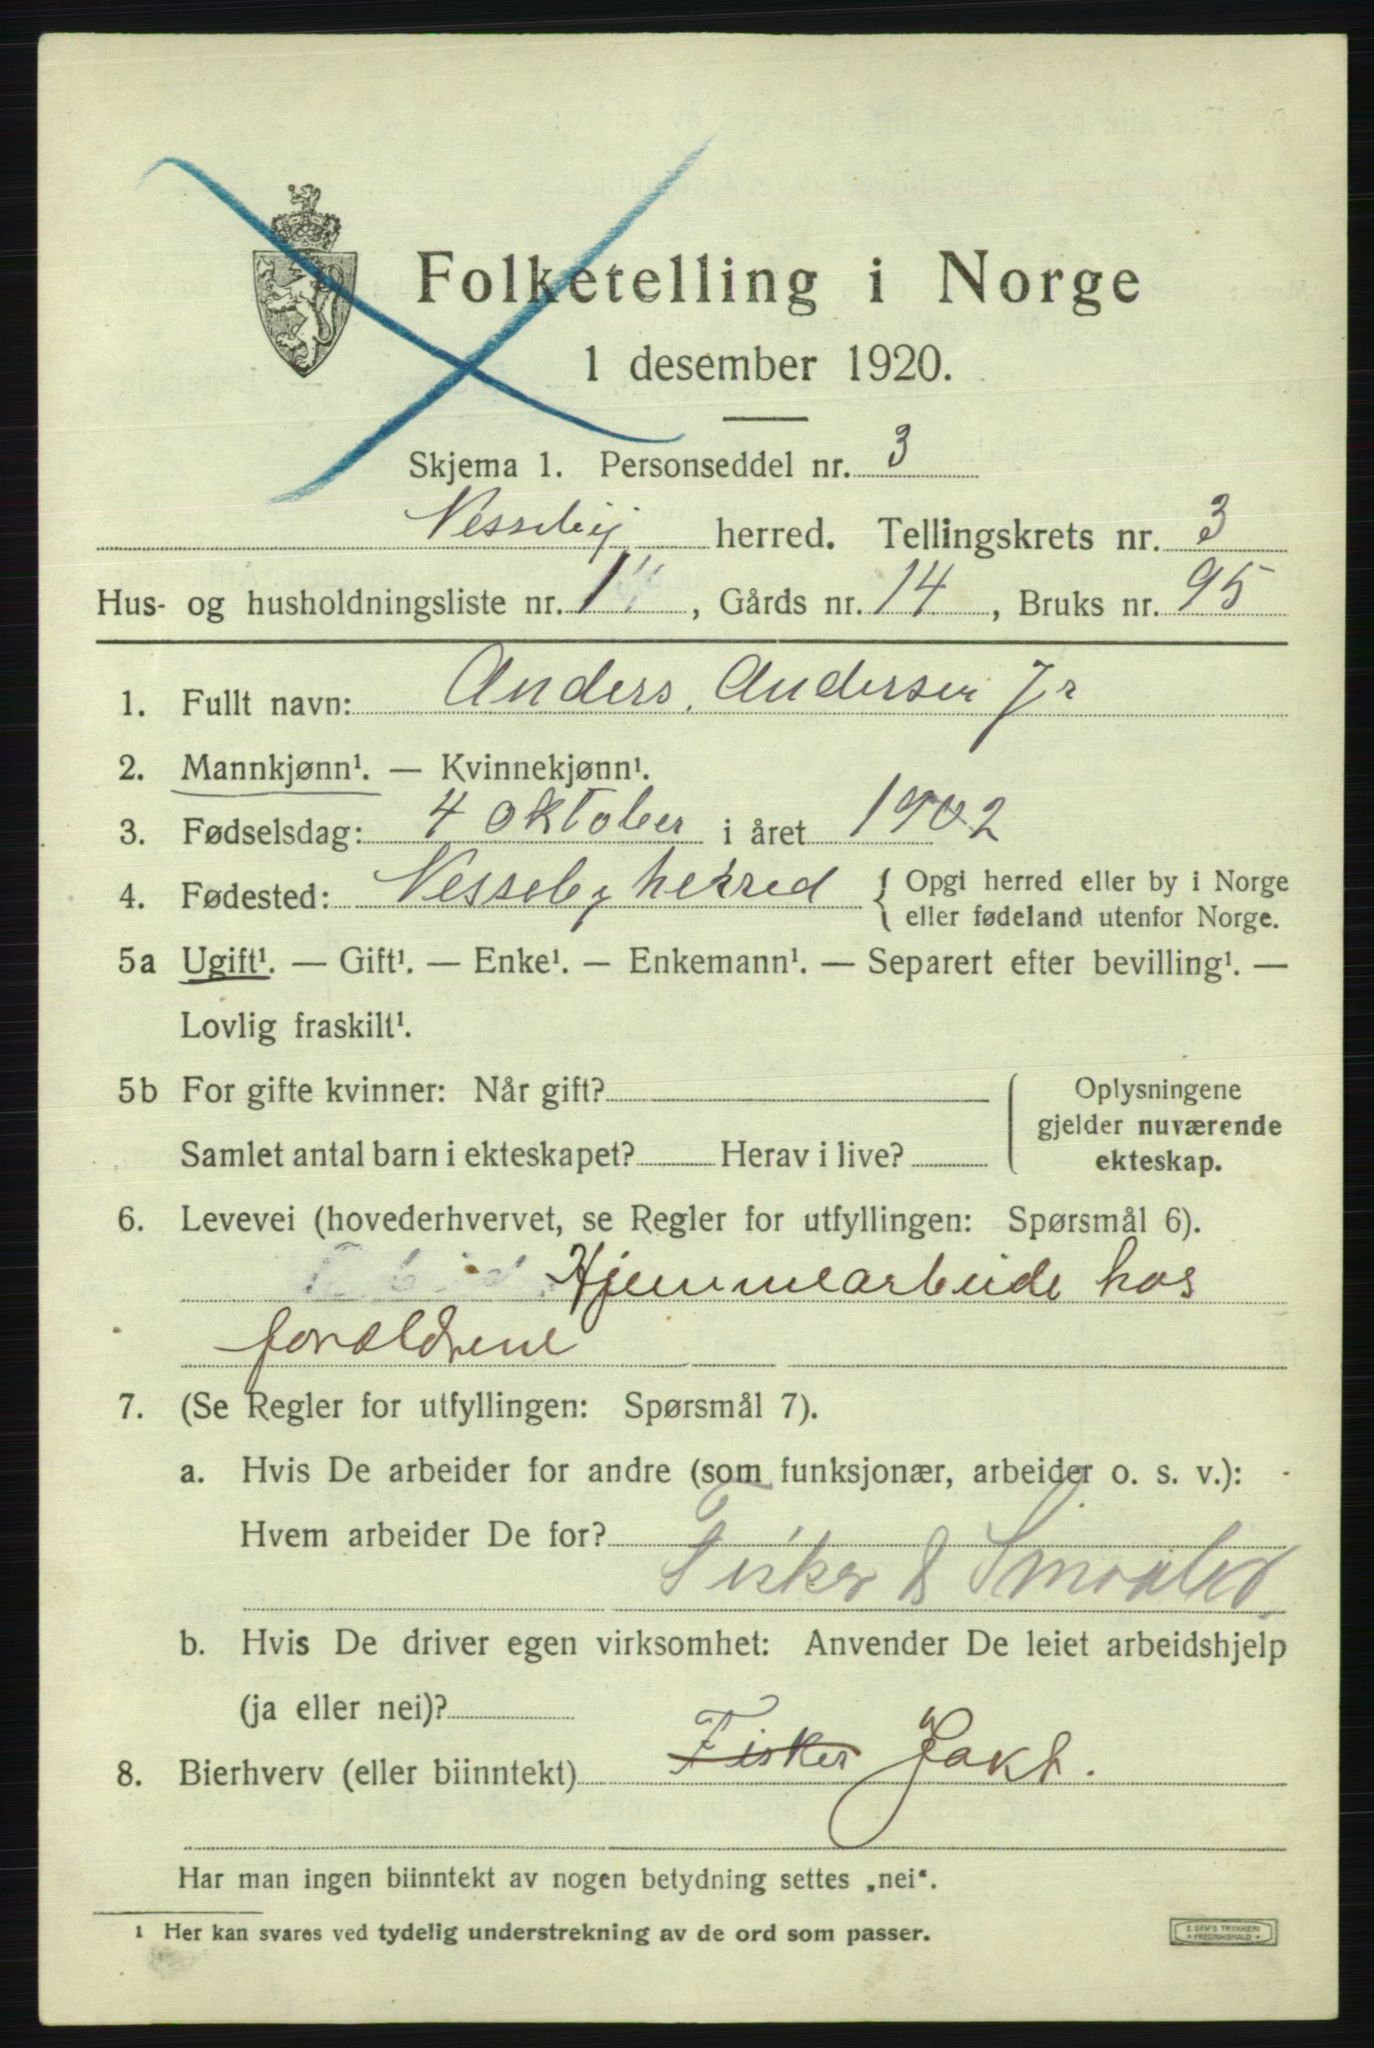 Folketelling i Norge
1 desember 1920.
Skjema 1. Personseddel nr. 3
Nesseby herred. Tellingskrets nr. 3
Hus- og husholdningsliste nr. , Gårds nr. 14, Bruks nr. 95
1. Fullt navn: Anders. Andersen Jr
2. Mannkjønn¹. — Kvinnekjønn¹.
3. Fødselsdag: 4 oktober i året 1902
4. Fødested: Nesseby herred { Opgi herred eller by i Norge
eller fødeland utenfor Norge.
5a Ugift¹. — Gift¹. — Enke¹. — Enkemann¹. — Separert efter bevilling¹. —
Lovlig fraskilt¹.
5b For gifte kvinner: Når gift? Oplysningene
gjelder nuværende
Samlet antal barn i ekteskapet? Herav i live? ekteskap.
6. Levevei (hovederhvervet, se Regler for utfyllingen: Spørsmål 6).
Hjemmearbeide hos
forældrene
7. (Se Regler for utfyllingen: Spørsmål 7).
a. Hvis De arbeider for andre (som funksjonær, arbeider o. s. v.):
Hvem arbeider De for?
Fisker &
b. Hvis De driver egen virksomhet: Anvender De leiet arbeidshjelp
(ja eller nei)?
8. Bierhverv (eller biinntekt) Fisker Jakt.
Har man ingen biinntekt av nogen betydning settes „nei“.
¹ Her kan svares ved tydelig understrekning av de ord som passer.
E. SEM'S TRYKKERI
FREDRIKSHALD